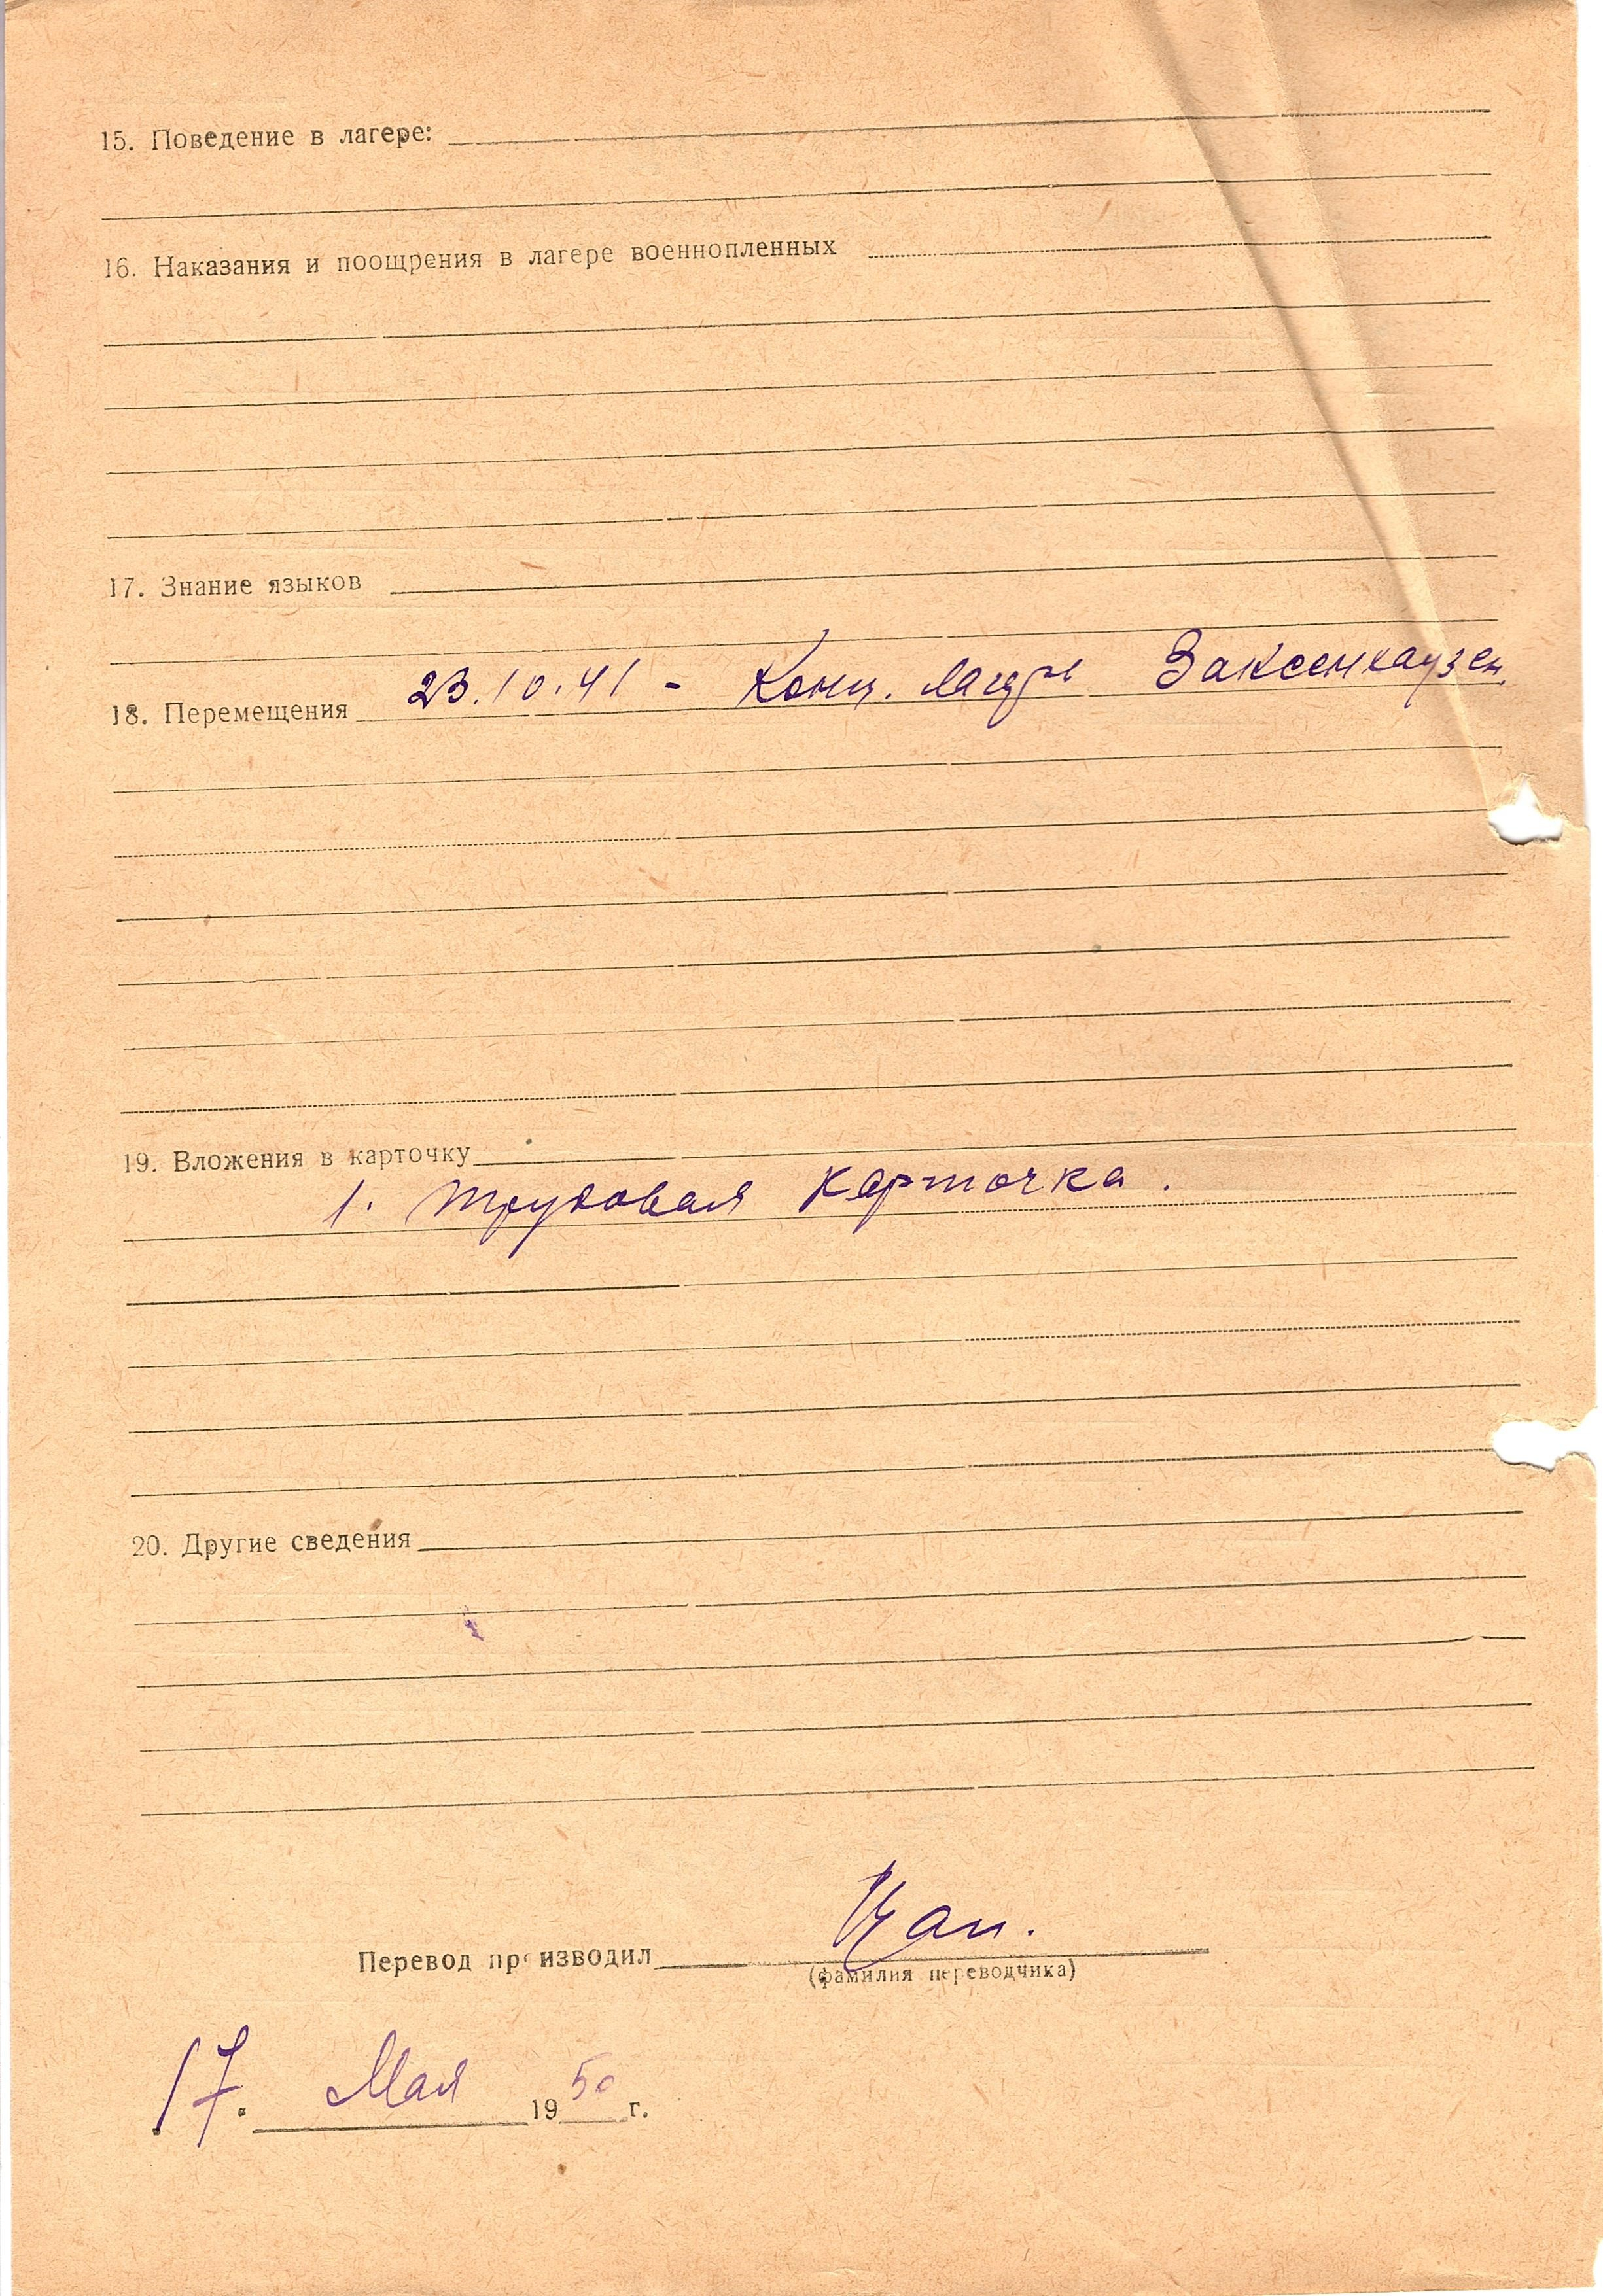 15. Поведение в лагере:
16. Наказания и поощрения в лагере военнопленных
17. Знание языков
18. Перемещения 23.10.41 - Конц. лагерь Заксенхаузен.
19. Вложения в карточку
1. трудовая карточка.
20. Другие сведения
Перевод производил
(фамилия переводчика)
17. Мая 1950 г.